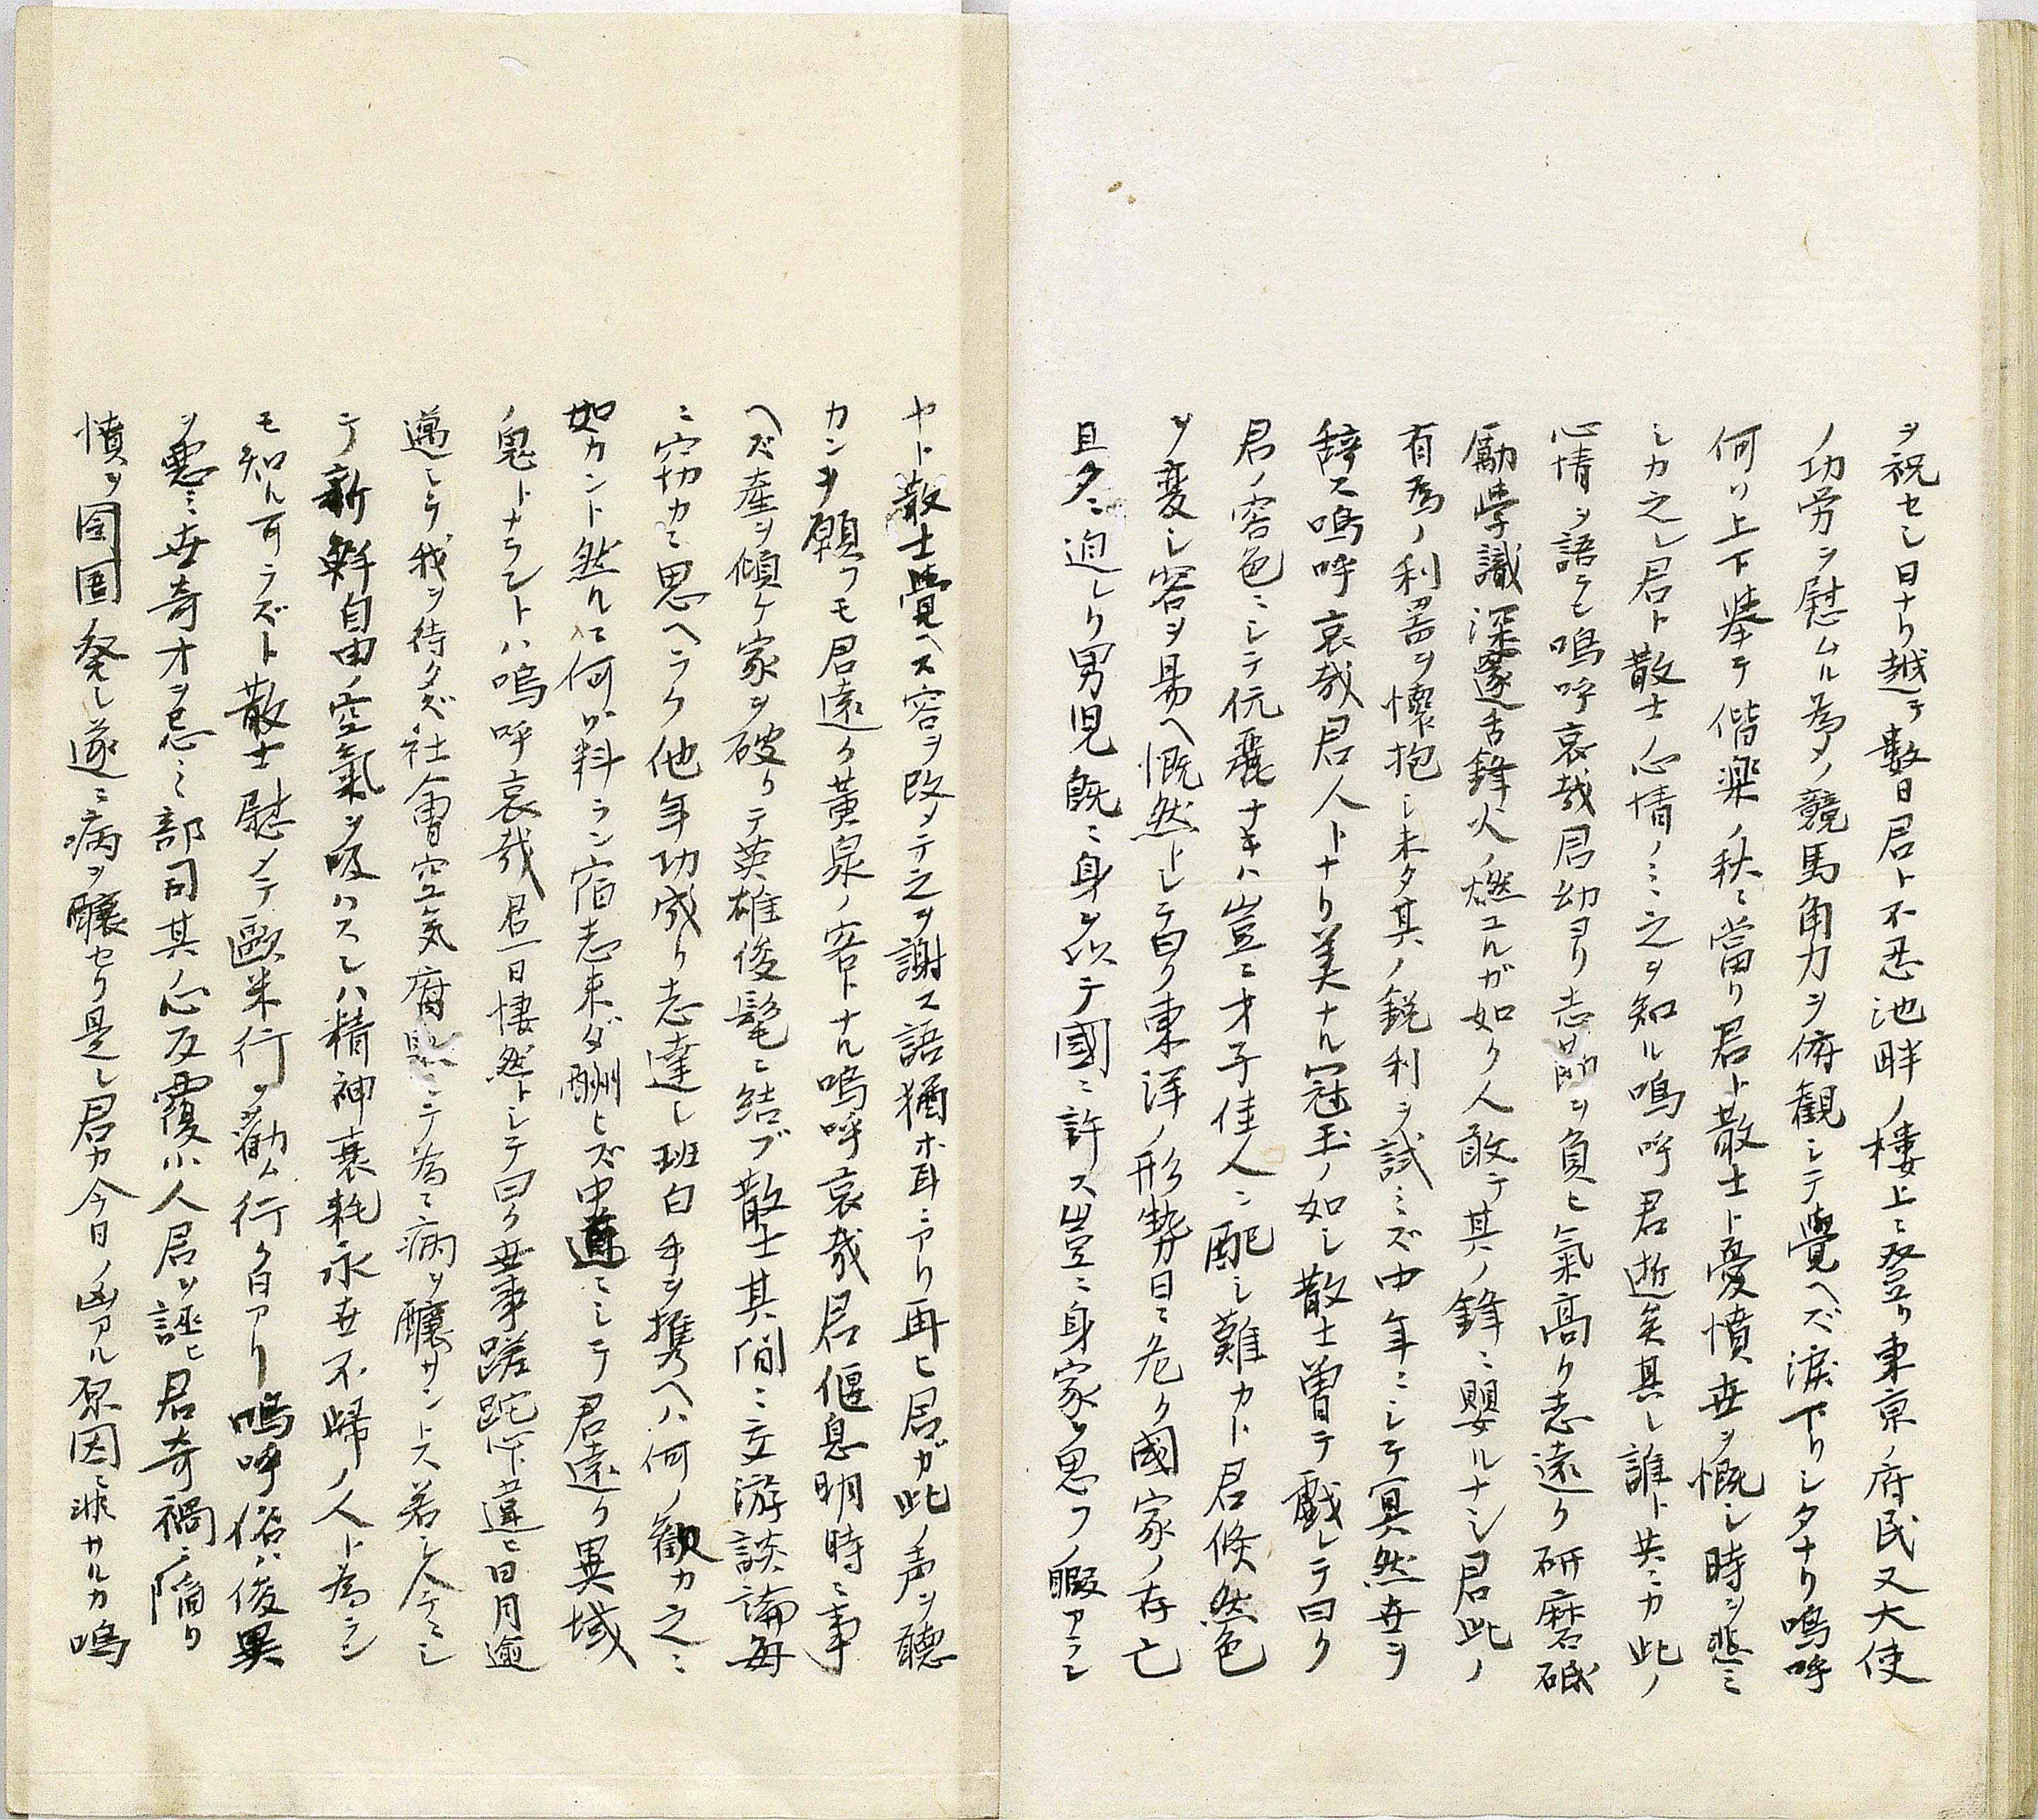 ヲ祝セシ日ナリ越テ數日君ト不忍池畔ノ樓上ニ登リ東京ノ府民又大使
ノ功労ヲ慰ムル為メノ競馬角力ヲ俯観シテ覺ヘズ涙下リシタナリ嗚呼
何ソ上下挙テ偕樂ノ秋ニ當リ君ト散士ト憂憤世ヲ慨シ時ヲ悲ミ
シカ之レ君ト散士ノ心情ノミ之ヲ知ル嗚呼君逝矣其レ誰ト共ニカ此ノ
心情ヲ語ラン嗚呼哀哉君幼ヨリ志節ヲ負ヒ氣高ク志遠ク研磨砥
勵學識深邃舌鋒火ノ燃ユルガ如ク人敢テ其ノ鋒ニ嬰ルナシ君此ノ
有為ノ利器ヲ懐抱シ未タ其ノ鋭利ヲ試ミズ中年ニシテ冥然世ヲ
辞ス嗚呼哀哉君人トナリ美ナル冠玉ノ如シ散士曽テ戯レテ曰ク
君ノ容色ニシテ伉麗ナキハ豈ニ才子佳人ニ配シ難カト君倏然色
ヲ変シ容ヲ易ヘ慨然トシテ曰ク東洋ノ形勢日ニ危ク國家ノ存亡
旦夕ニ迫レリ男児既ニ身ヲ以テ國ニ許ス豈ニ身家ヲ思フノ暇アラン
ヤト散士覺ヘス容ヲ改メテ之ヲ謝ス語猶ホ耳ニアリ再ヒ君ガ此ノ声ヲ聴
カンヲ願フモ君遠ク黄泉ノ客トナル嗚呼哀哉君偃息明時ニ事
ヘズ産ヲ傾ケ家ヲ破リテ英雄俊髦ニ結ブ散士其間ニ交游談論毎
ニ窃カニ思ヘラク他年功成リ志達シ班白手ヲ携ヘハ何ノ歓カ之ニ
如カント然ルニ何ゾ料ラン宿志未ダ酬ヒズ中道ニシテ君遠ク異域
ノ鬼トナラントハ嗚呼哀哉君一日悽然トシテ曰ク世事蹉跎心違ヒ日月逾
邁シテ我ヲ待タズ社會ノ空気腐敗シテ為ニ病ヲ醸サントス若シ今ニシ
テ新鮮自由ノ空氣ヲ吸ハスンハ精神衰耗永世不帰ノ人ト為ラン
モ知ル可ラズト散士慰メテ歐米行ヲ勧ム行ク白アリ嗚呼俗ハ俊異
ヲ悪ミ世奇才ヲ忌ミ部司其ノ心反覆小人君ヲ誣ヒ君奇禍ニ陥リ
憤ヲ囹圄ニ発シ遂ニ病ヲ醸セリ是レ君カ今日ノ凶アル原因ニ非サルカ嗚